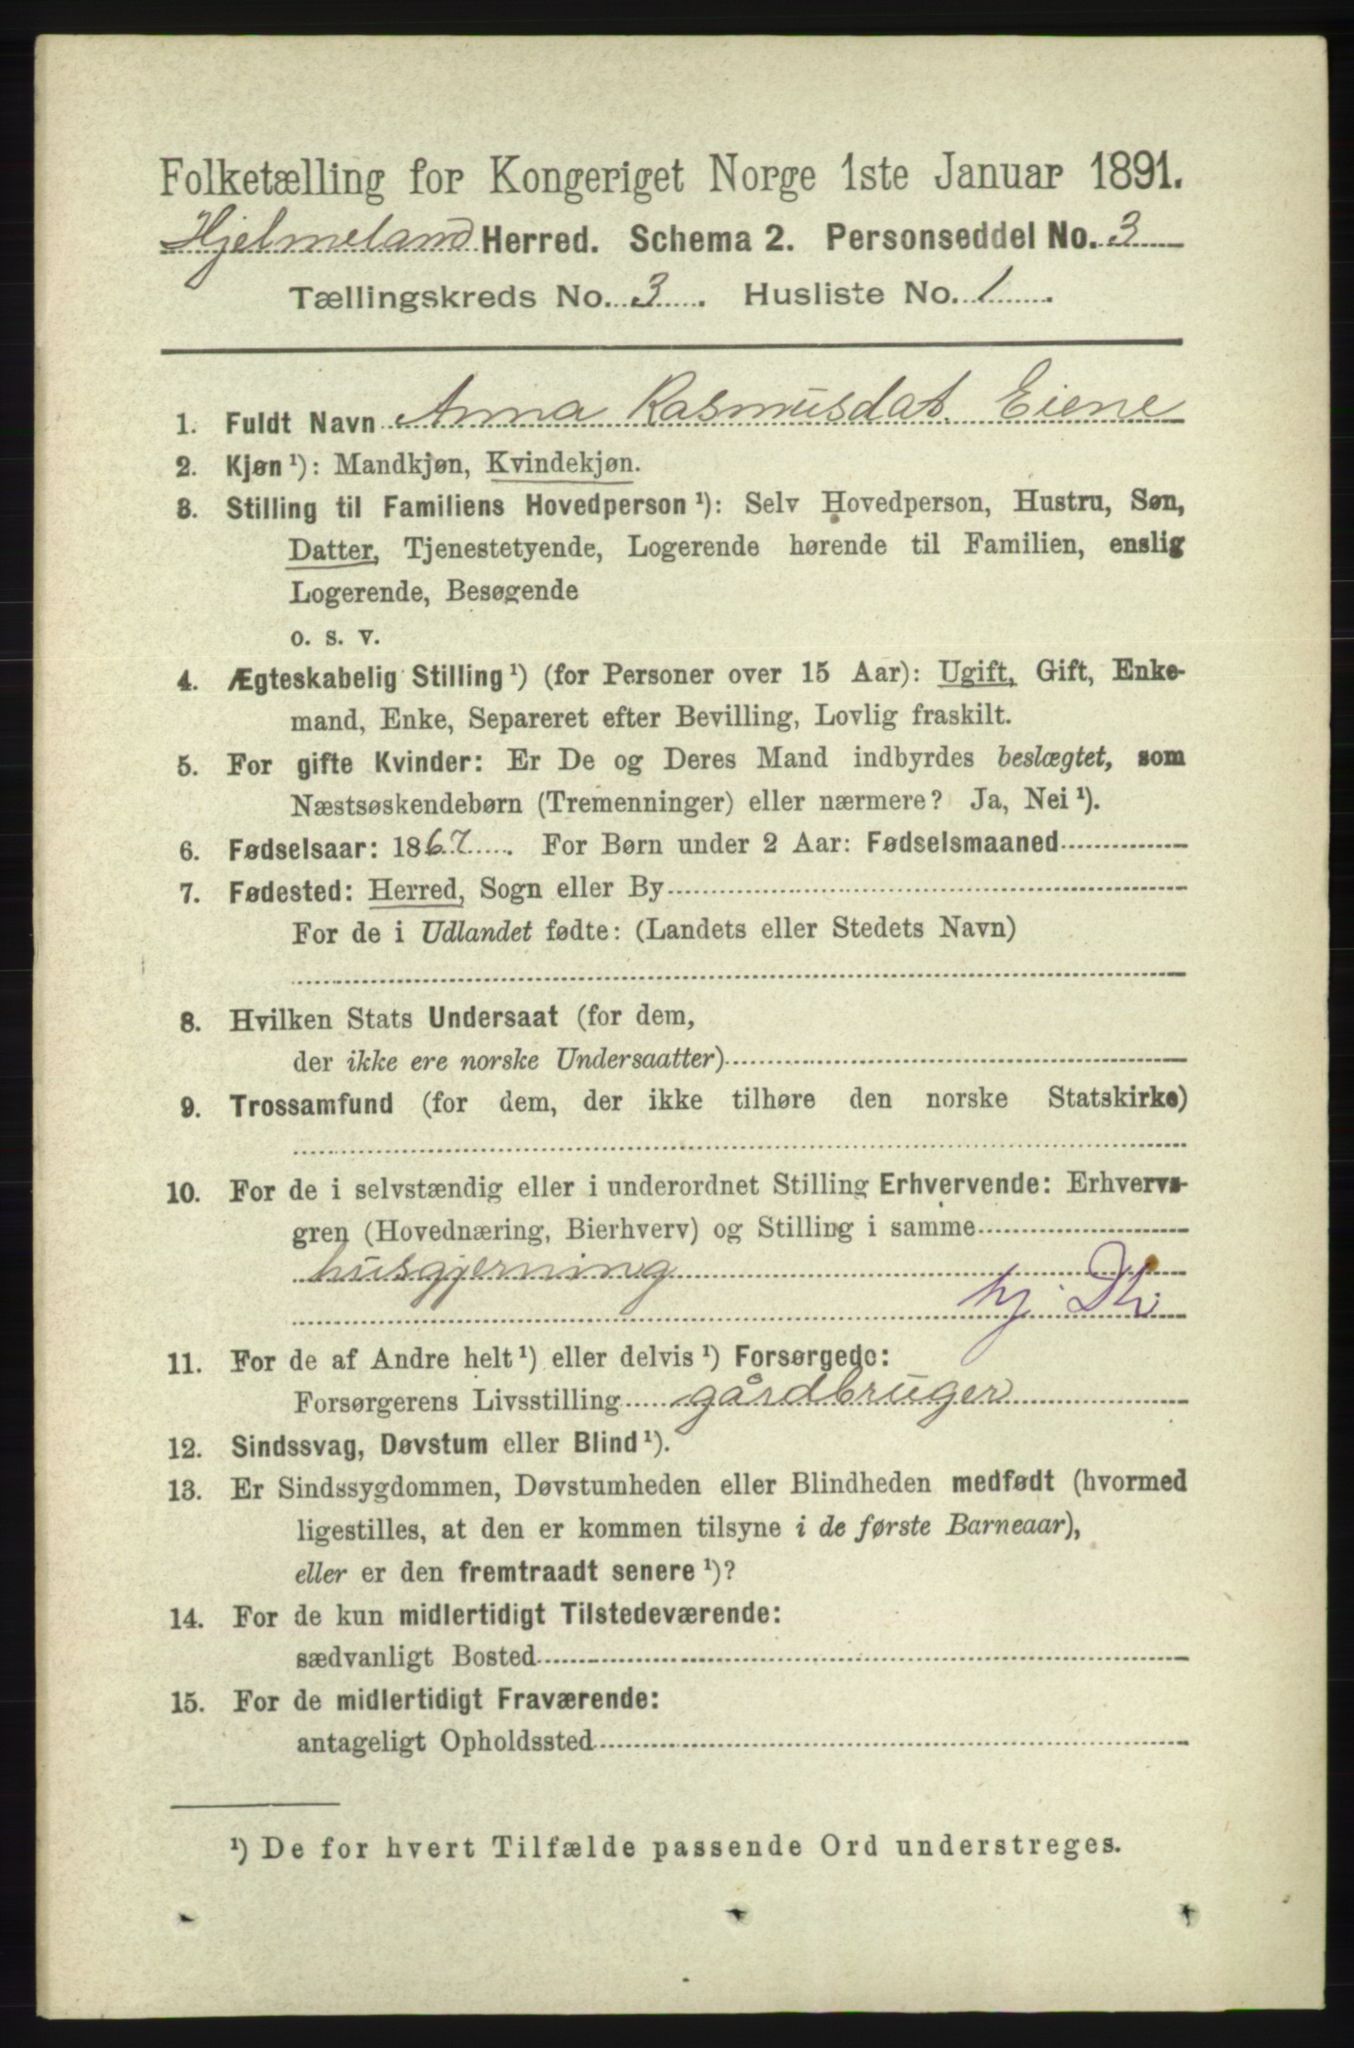 Folketælling for Kongeriget Norge 1ste Januar 1891.
Hjelmeland Herred. Schema 2. Personseddel No. 3
Tællingskreds No. 3. Husliste No. 1.
1. Fuldt Navn Anna Rasmusdat. Eiene
2. Kjøn ¹): Mandkjøn, Kvindekjøn.
3. Stilling til Familiens Hovedperson ¹): Selv Hovedperson, Hustru, Søn,
Datter, Tjenestetyende, Logerende hørende til Familien, enslig
Logerende, Besøgende
o. s. v.
4. Ægteskabelig Stilling ¹) (for Personer over 15 Aar): Ugift, Gift, Enke-
mand, Enke, Separeret efter Bevilling, Lovlig fraskilt.
5. For gifte Kvinder: Er De og Deres Mand indbyrdes beslægtet, som
Næstsøskendebørn (Tremenninger) eller nærmere? Ja, Nei ¹).
6. Fødselsaar: 1867. For Børn under 2 Aar: Fødselsmaaned
7. Fødested: Herred, Sogn eller By
For de i Udlandet fødte: (Landets eller Stedets Navn)
8. Hvilken Stats Undersaat (for dem,
der ikke ere norske Undersaatter)
9. Trossamfund (for dem, der ikke tilhøre den norske Statskirke)
10. For de i selvstændig eller i underordnet Stilling Erhvervende: Erhvervs-
gren (Hovednæring, Bierhverv) og Stilling i samme
husgjerning
hj.
11. For de af Andre helt ¹) eller delvis ¹) Forsørgede:
Forsørgerens Livsstilling gårdbruger
12. Sindssvag, Døvstum eller Blind ¹).
13. Er Sindssygdommen, Døvstumheden eller Blindheden medfødt (hvormed
ligestilles, at den er kommen tilsyne i de første Barneaar),
eller er den fremtraadt senere ¹)?
14. For de kun midlertidigt Tilstedeværende:
sædvanligt Bosted
15. For de midlertidigt Fraværende:
antageligt Opholdssted
¹) De for hvert Tilfælde passende Ord understreges.